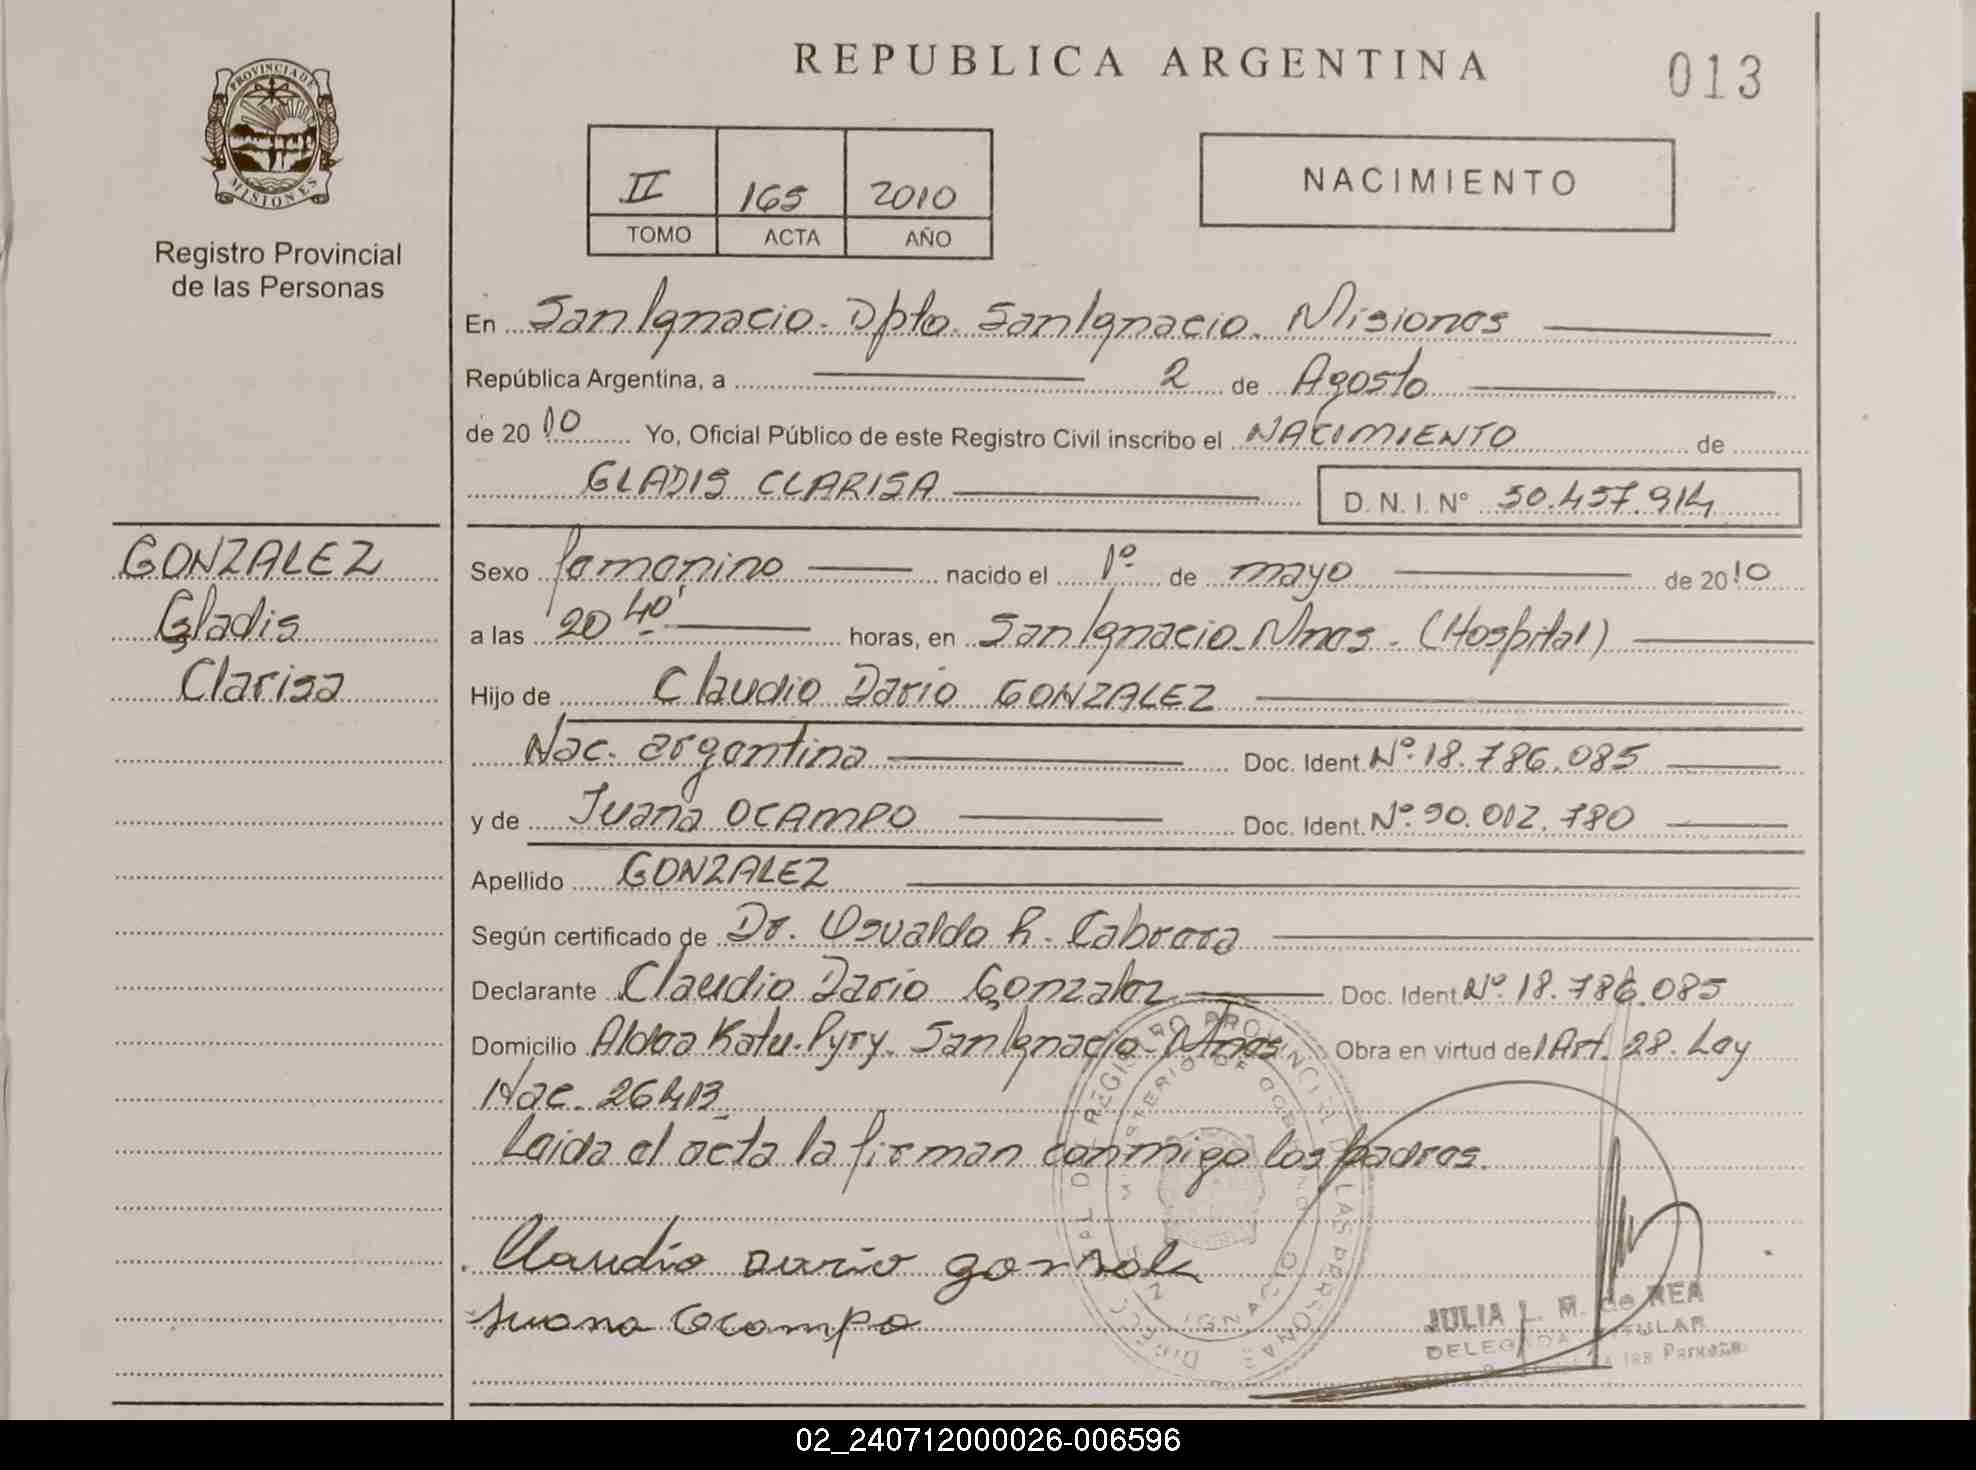 REPUBLICA ARGENTINA
013
PROVINCIA DE
MISIONES
Registro Provincial
de las Personas
II 165 2010
TOMO ACTA AÑO
NACIMIENTO
En San Ignacio. Dpto. San Ignacio. Misiones
República Argentina, a 2 de Agosto
de 2010 Yo, Oficial Público de este Registro Civil inscribo el NACIMIENTO de
GLADIS CLARISA D. N. I. Nº 50.457.914
GONZALEZ
Gladis
Clarisa
Sexo femenino nacido el 1º de mayo de 2010
a las 20 40' horas, en San Ignacio. Mnes. (Hospital)
Hijo de Claudio Dario GONZALEZ
Nac. argentina Doc. Ident. Nº 18.786.085
y de Juana OCAMPO Doc. Ident. Nº 90.012.780
Apellido GONZALEZ
Según certificado de Dr. Osvaldo R. Cabrera
Declarante Claudio Dario Gonzalez Doc. Ident Nº 18.786.085
Domicilio Aldea Katu-Pyry. San Ignacio-Mnes Obra en virtud del Art. 28. Ley
Nac. 26413.
Leida el acta la firman conmigo los padres.
Claudio Dario
Juana Ocampo
JULIA L. M. de REA
DELEGADA TITULAR
02_240712000026-006596